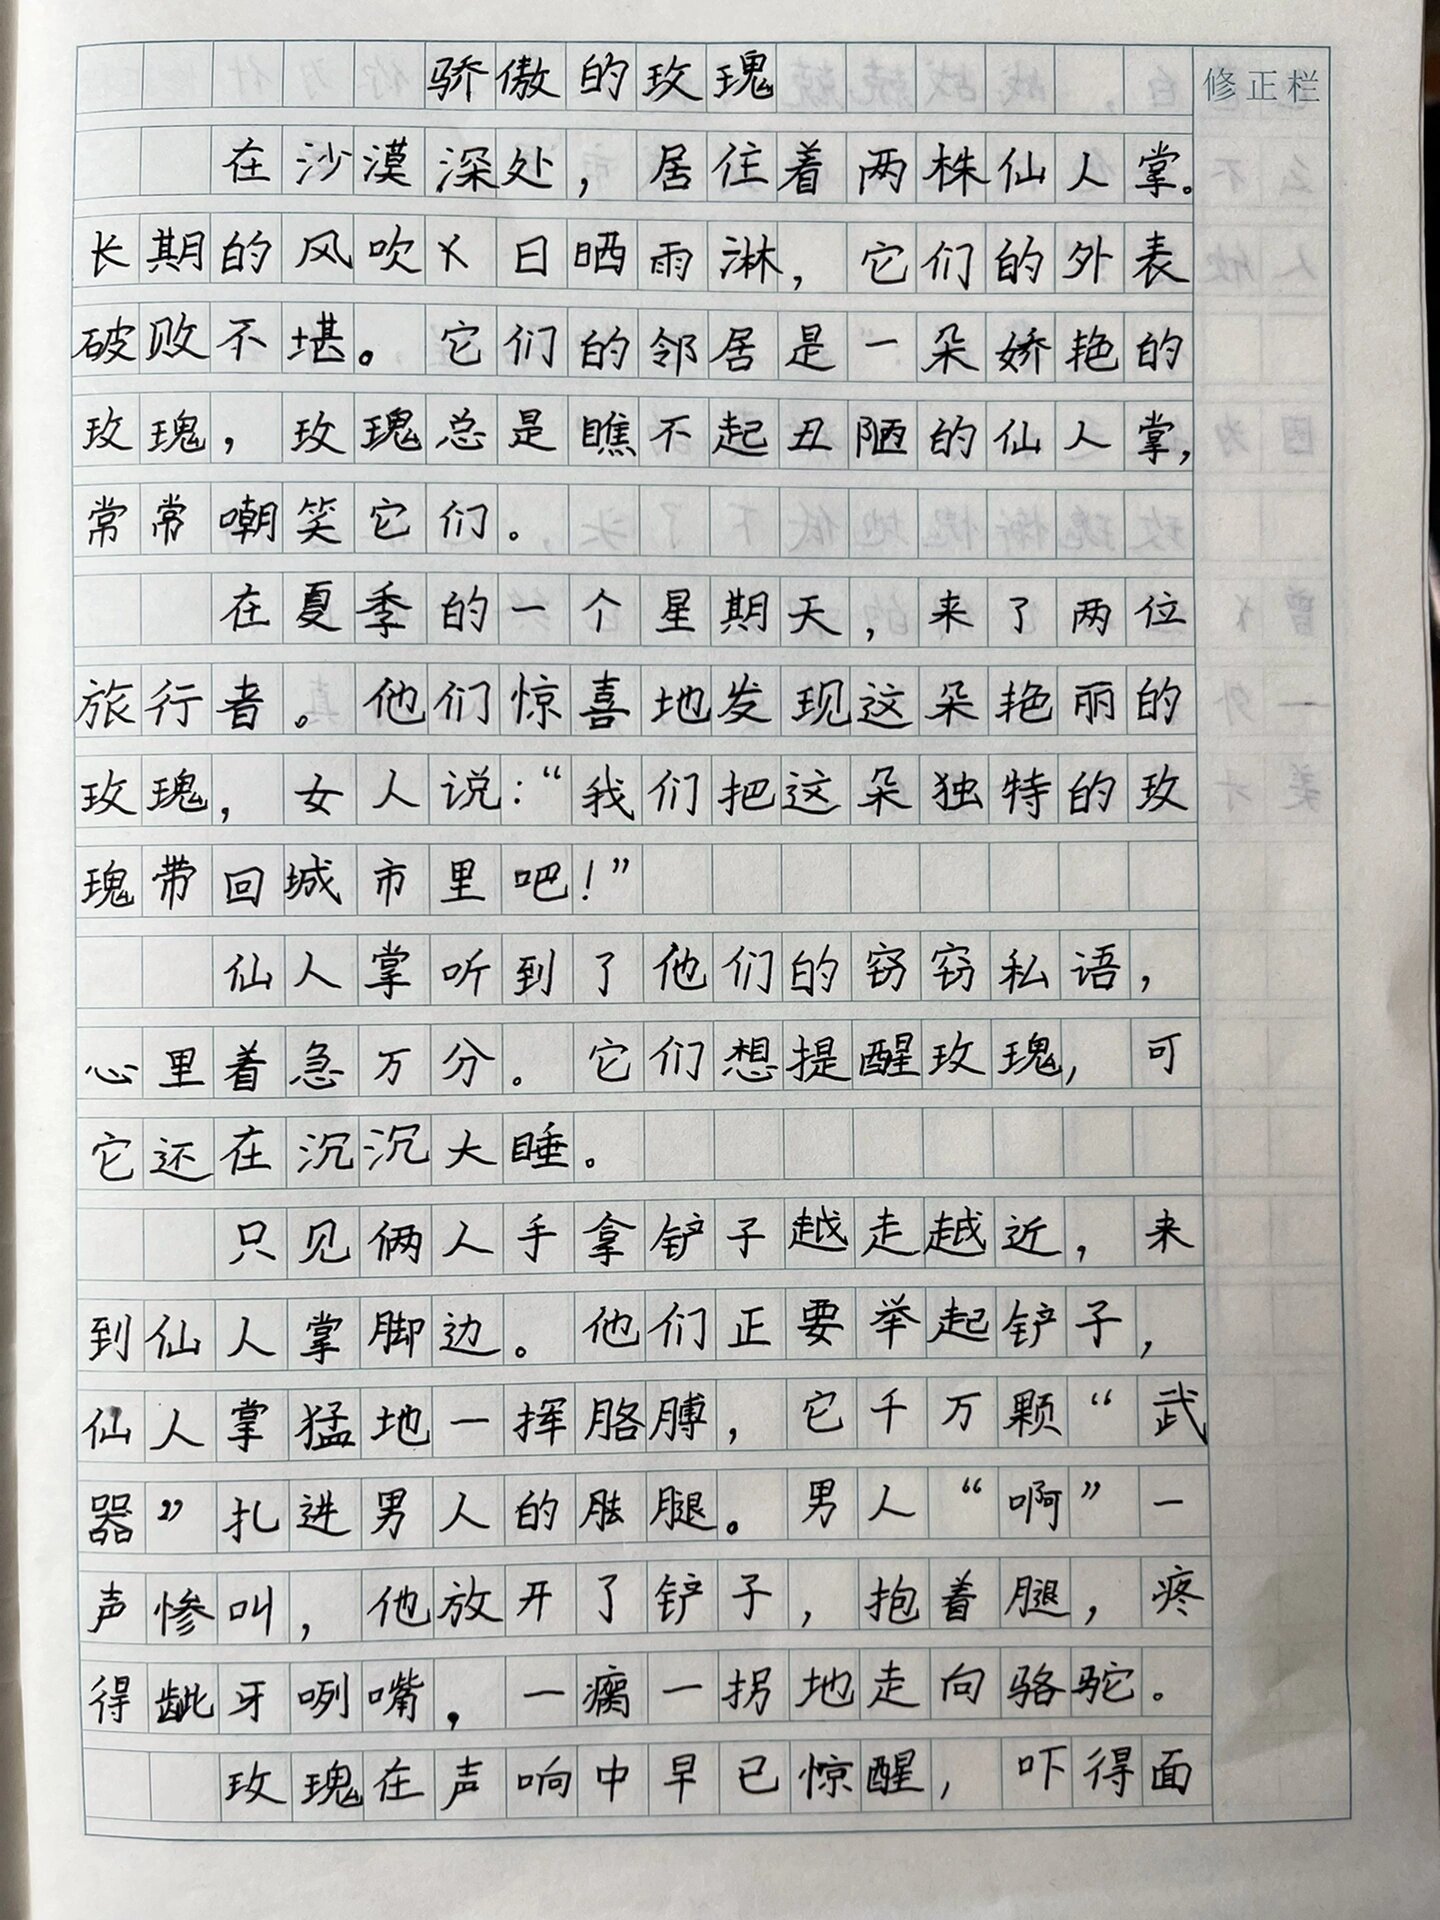 骄傲的玫瑰
修正栏
在沙漠深处，居住着两株仙人掌。
长期的风吹日晒雨淋，它们的外表
破败不堪。它们的邻居是一朵娇艳的
玫瑰，玫瑰总是瞧不起丑陋的仙人掌，
常常嘲笑它们。
在夏季的一个星期天，来了两位
旅行者。他们惊喜地发现这朵艳丽的
玫瑰，女人说：“我们把这朵独特的玫
瑰带回城市里吧！”
仙人掌听到了他们的窃窃私语，
心里着急万分。它们想提醒玫瑰，可
它还在沉沉大睡。
只见俩人手拿铲子越走越近，来
到仙人掌脚边。他们正要举起铲子，
仙人掌猛地一挥胳膊，它千万颗“武
器”扎进男人的腿。男人“啊”一
声惨叫，他放开了铲子，抱着腿，疼
得龇牙咧嘴，一瘸一拐地走向骆驼。
玫瑰在声响中早已惊醒，吓得面